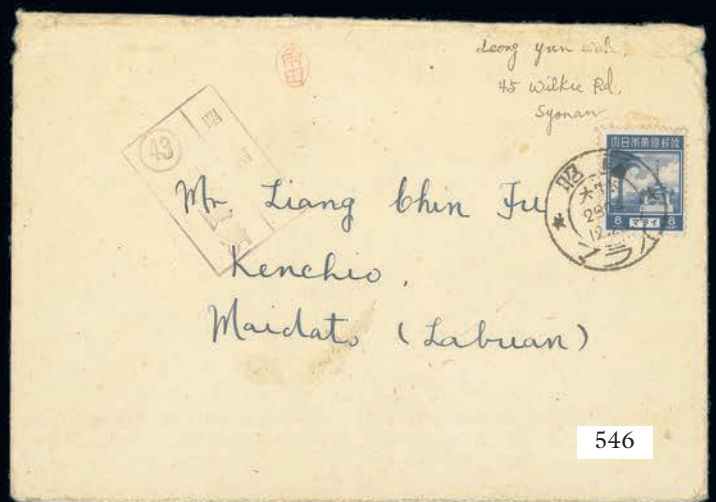 Leong yun
45 Wilkie Rd,
Syonan
大日本帝國郵便
8 マライ 8
昭
43
昭
Mr Liang Chin Fu
Kenchio,
Maidato (Labuan)
546